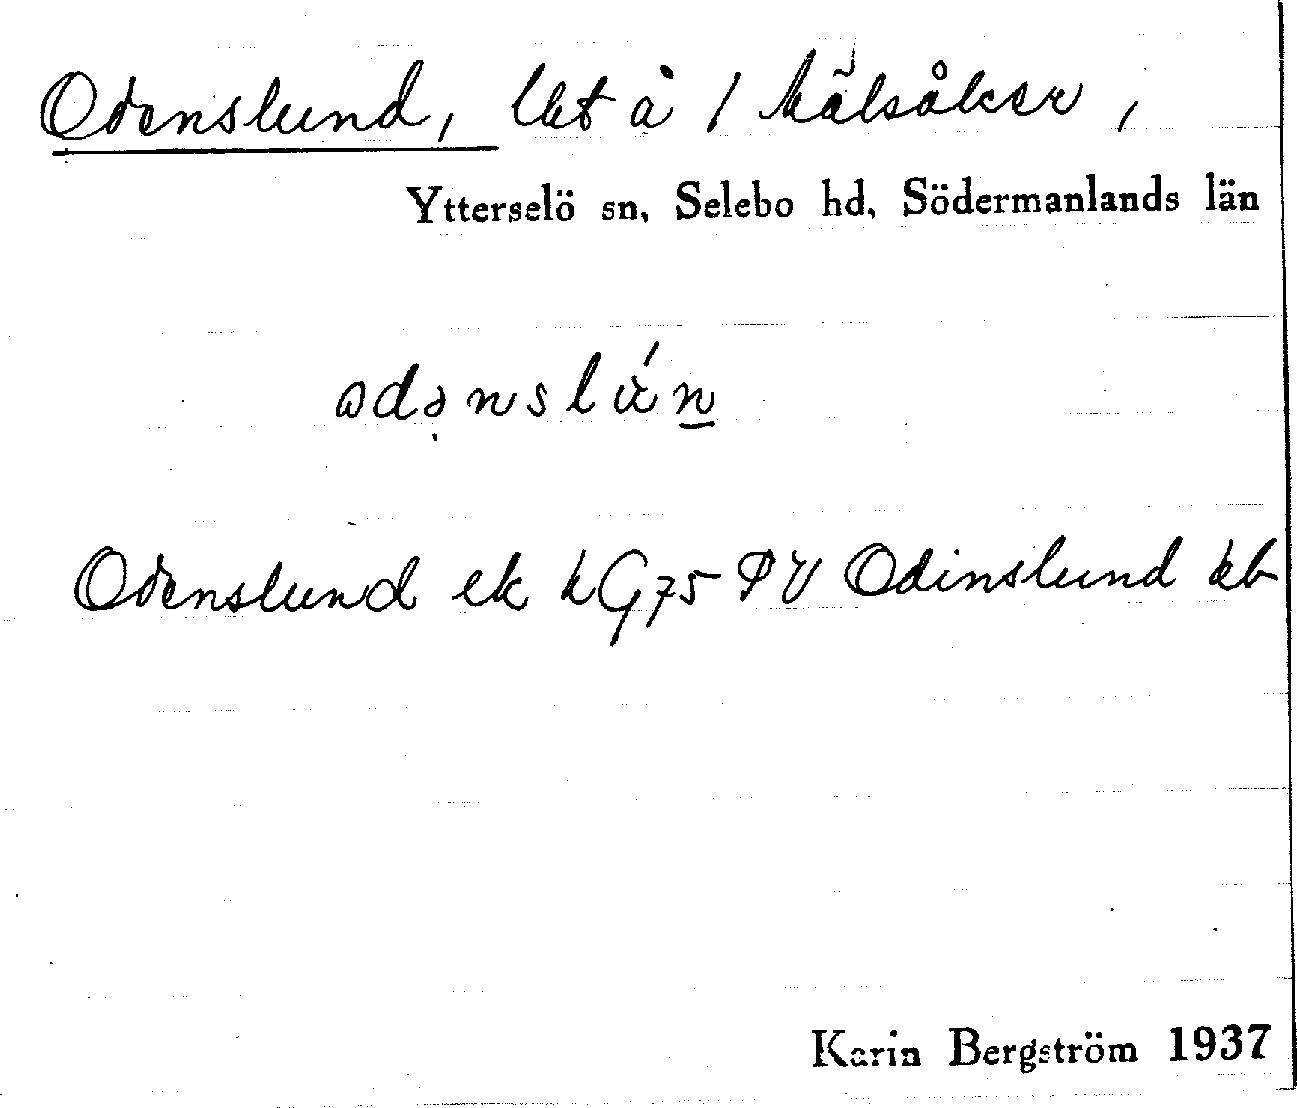 Odenslund, lht å 1 Mälsåker,
Ytterselö sn, Selebo hd, Södermanlands län
Odenslund ek hG75 Odinslund kb
Karin Bergström 1937